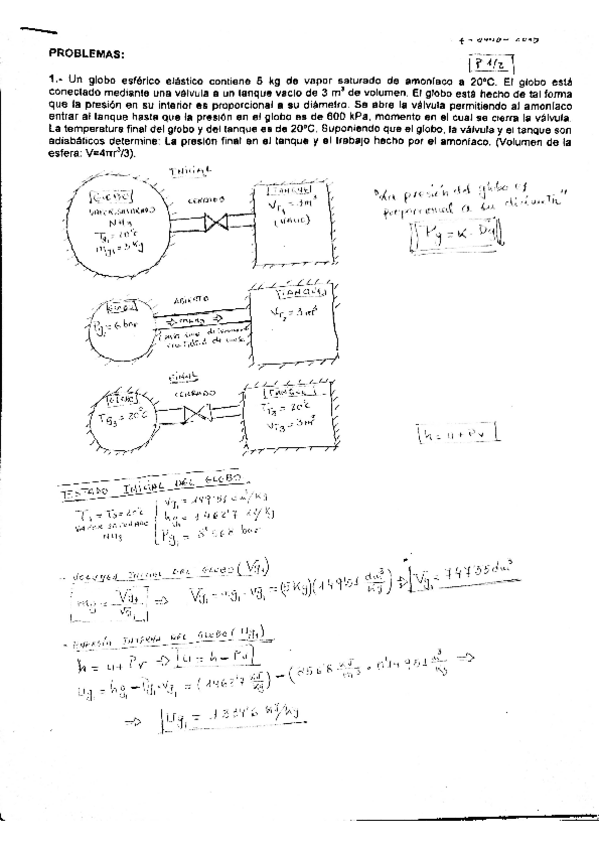 P 1/2
PROBLEMAS:
1.- Un globo esférico elástico contiene 5 kg de vapor saturado de amoníaco a 20°C. El globo está
conectado mediante una válvula a un tanque vacío de 3 m³ de volumen. El globo está hecho de tal forma
que la presión en su interior es proporcional a su diámetro. Se abre la válvula permitiendo al amoníaco
entrar al tanque hasta que la presión en el globo es de 600 kPa, momento en el cual se cierra la válvula.
La temperatura final del globo y del tanque es de 20°C. Suponiendo que el globo, la válvula y el tanque son
adiabáticos determine: La presión final en el tanque y el trabajo hecho por el amoníaco. (Volumen de la
esfera: V=4πr³/3).
INICIAL
GLOBO
VAPOR SATURADO
NH₃
Tg₁ = 20°C
mg₁ = 5 Kg
CERRADO
TANQUE
VT₁ = 3m³
(VACIO)
"La presión del globo es
proporcional a su diámetro"
Pg = K · Dg
GLOBO
Pg₂ = 6 bar
ABIERTO
TANQUE
VT₂ = 3m³
FINAL
GLOBO
Tg₃ = 20°C
CERRADO
TANQUE
TT₃ = 20°C
VT₃ = 3m³
h = u + Pv
ESTADO INICIAL DEL GLOBO
T₁ = 20°C
VAPOR SATURADO
NH₃
vg₁ = 149'51 dm³/kg
hg₁ = 1462'7 kJ/kg
Pg₁ = 8'568 bar
- VOLUMEN INICIAL DEL GLOBO (Vg₁)
mg₁ = Vg₁/vg₁ ⇒ Vg₁ = mg₁ · vg₁ = (5Kg)(149'51 dm³/kg) ⇒ Vg₁ = 747'55 dm³
- ENERGÍA INTERNA DEL GLOBO (ug₁)
h = u + Pv ⇒ u = h - Pv
ug₁ = hg₁ - Pg₁·vg₁ = (1462'7 kJ/kg) - (856'8 kJ/m³ · 0'14951 m³/kg) ⇒
⇒ ug₁ = 1334'6 kJ/kg